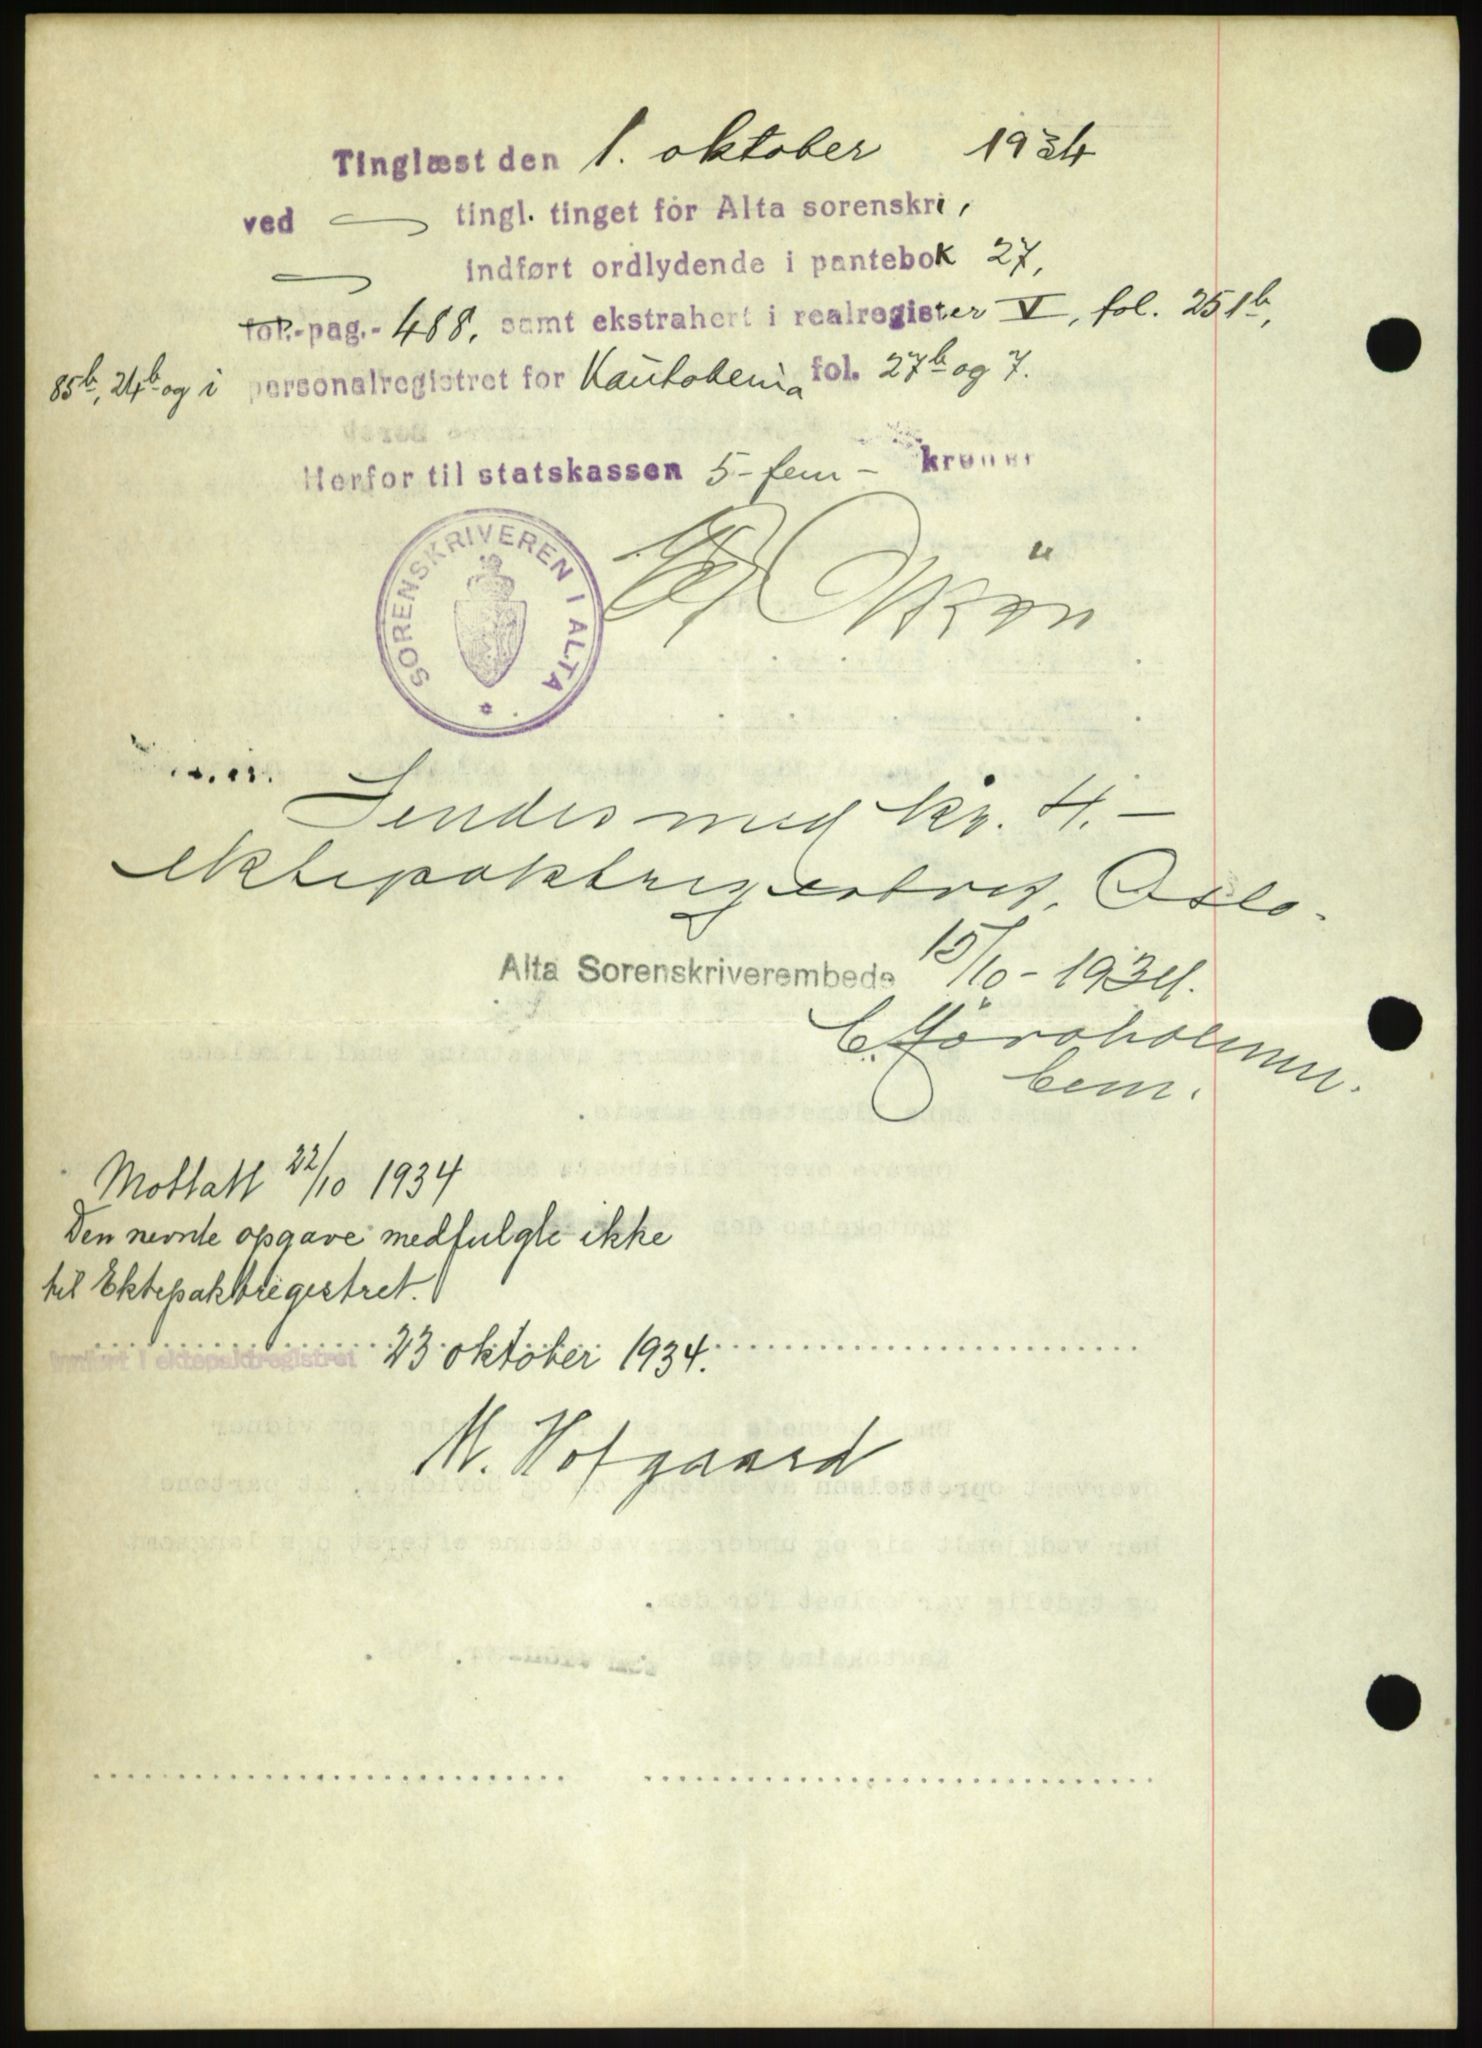 Tinglæst den 1. oktober 1934
ved — tingl. tinget for Alta sorenskri,
— indført ordlydende i pantebok 27,
fol.-pag.- 488, samt ekstrahert i realregister V, fol. 251b,
85b, 24b og i personalregistret for fol. 27b og 7.
Herfor til statskassen 5 - fem - kroner
SORENSKRIVEREN I ALTA
Sendes med kr. 4. -
ektepaktregistret, Oslo.
Alta Sorenskriverembede 15/10 - 1934.
Mottatt 22/10 1934
Den nevnte opgave medfulgte ikke
til Ektepaktregistret.
Innført i ektepaktregistret 23 oktober 1934.
M. Hofgaard